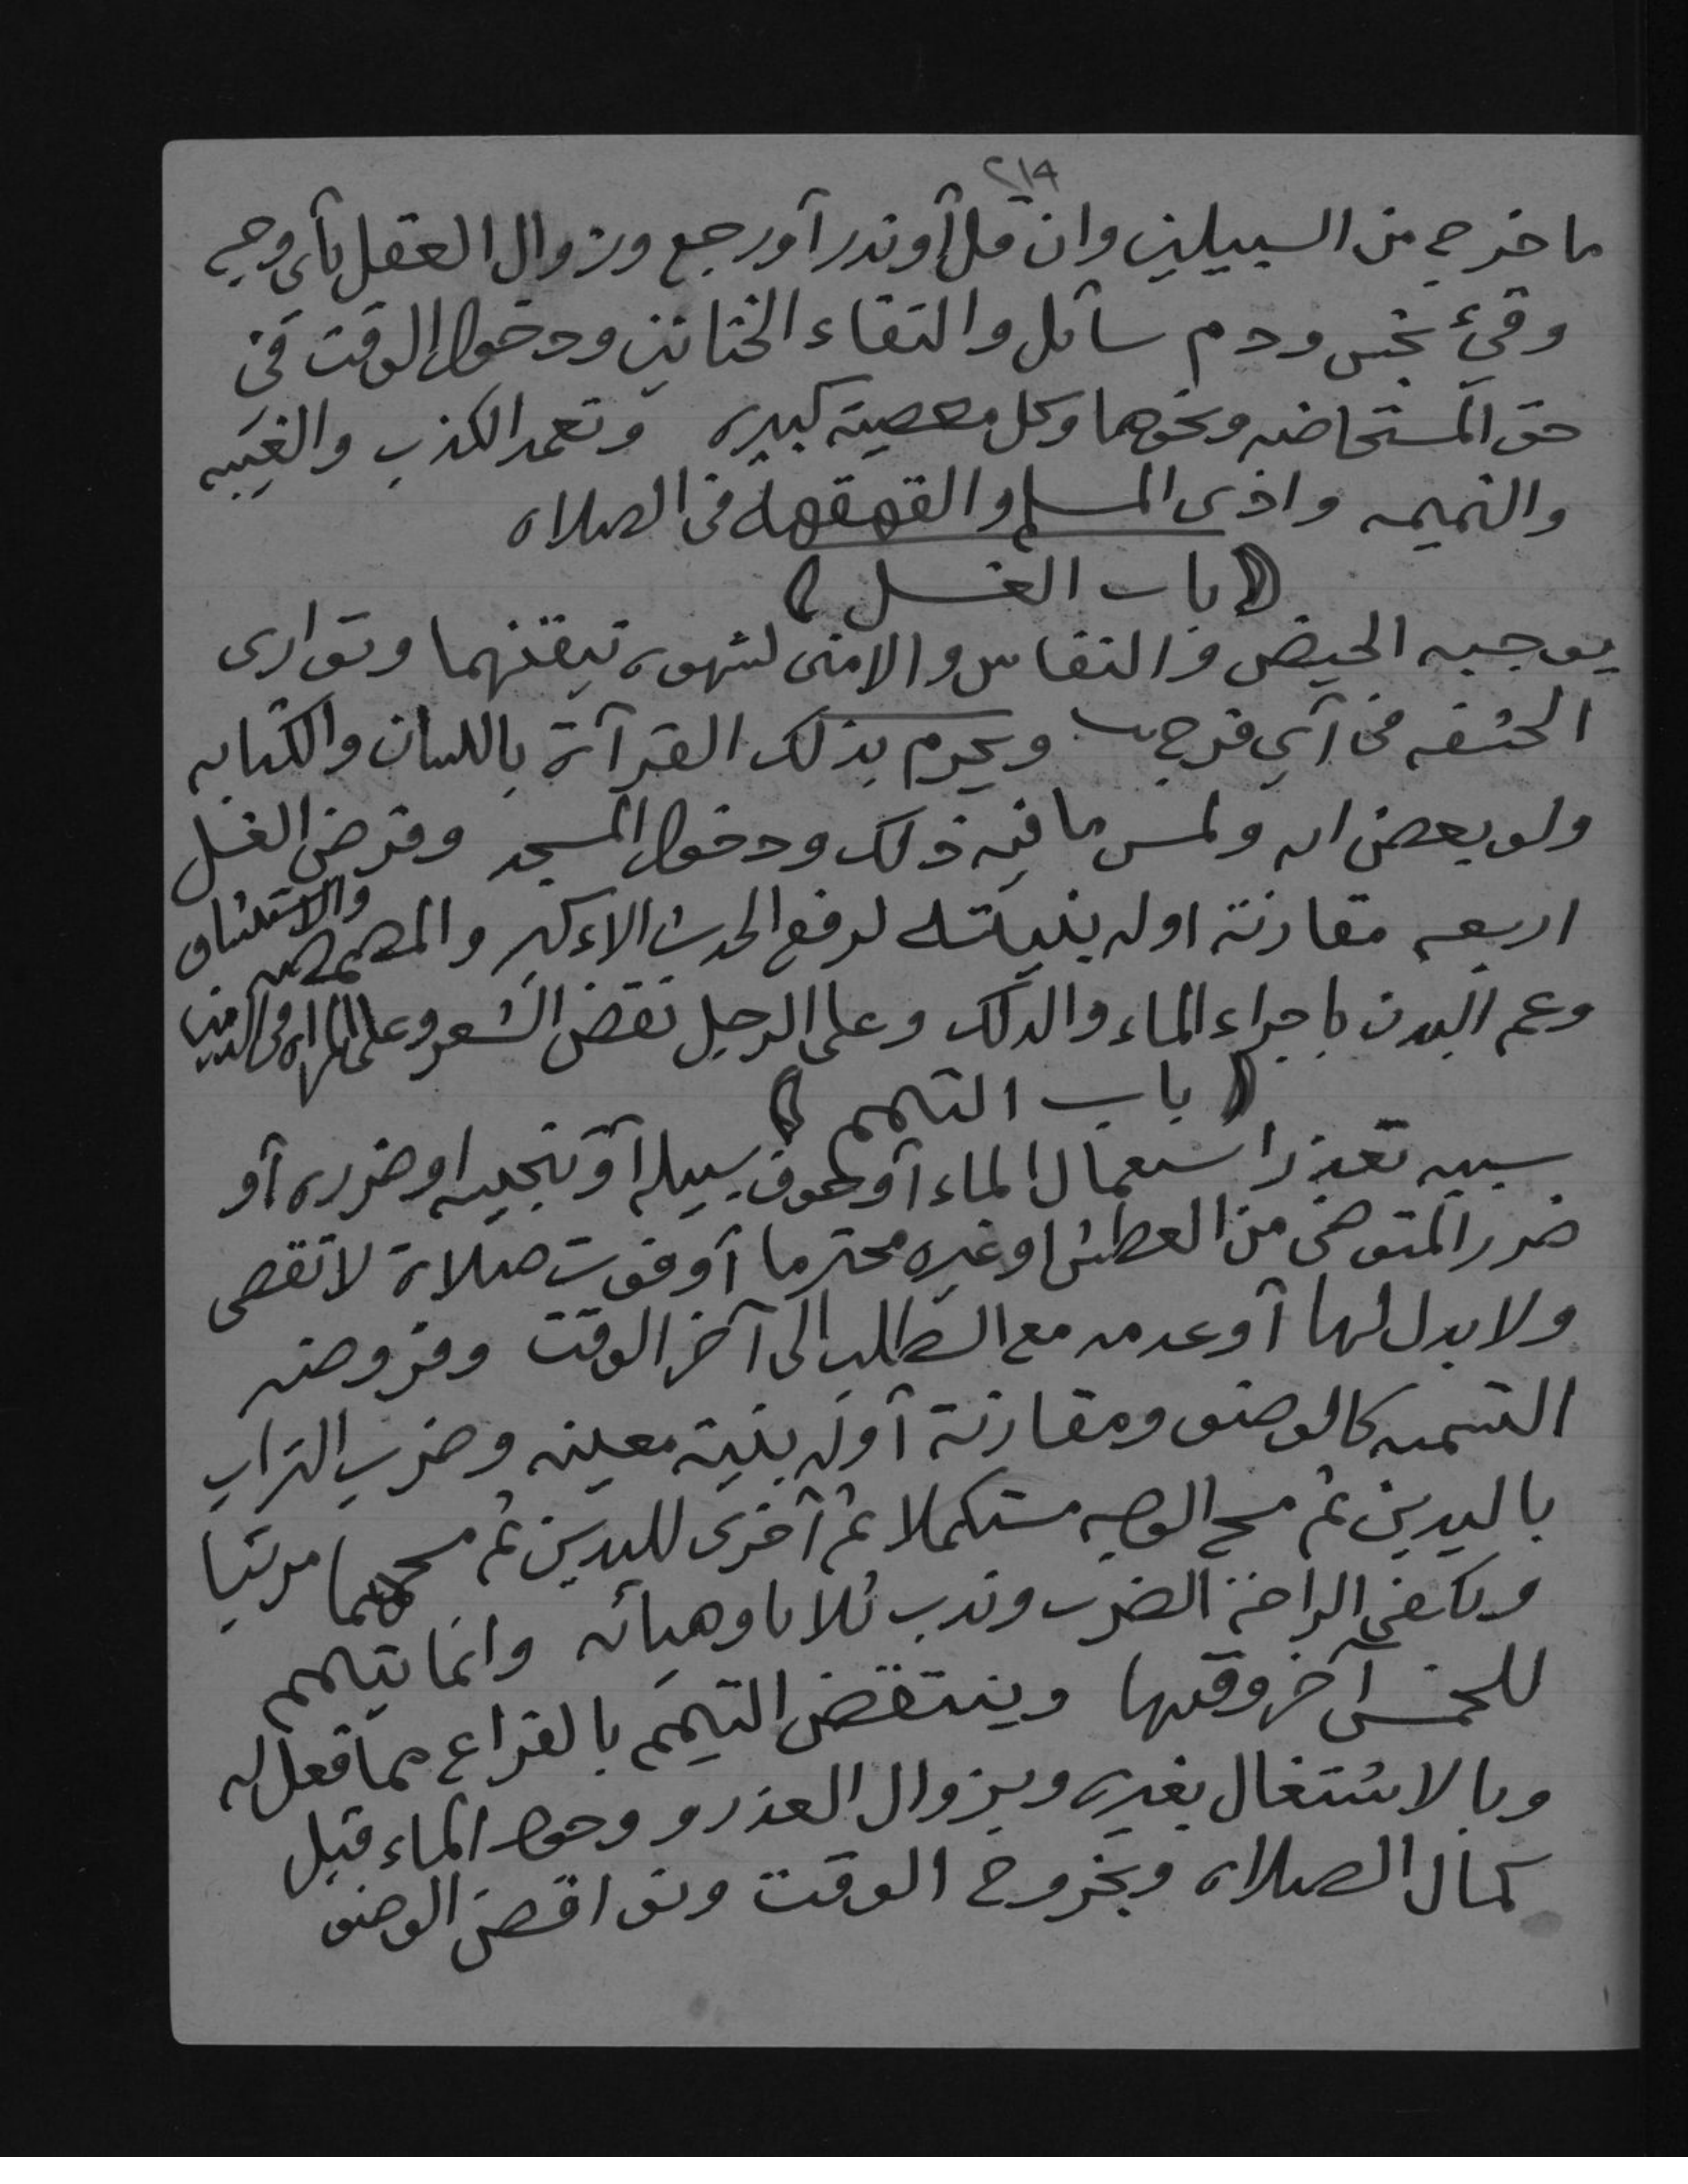 ٢١٩
ما خرج من السبيلين وان قل أو ندر آو رجع وزوال العقل بأى وجه
وقيء نجس ودم سآئل والتقاء الختانين ودخول الوقت فى
حق المستحاضه ونحوها وكل معصية كبيره وتعمد الكذب والغيبه
والنميمه واذى المسلم والقهقهة فى الصلاه
( باب الغسل )
يوجبه الحيض والنفاس والامنى لشهوه تيقنهما وتوارى
الحشفه فى آي فرج ويحرم بذلك القرآة باللسان والكتابه
ولو بعض ايه ولمس ما فيه ذلك ودخول المسجد وفرض الغسل
اربعه مقارنة اوله بنيته لرفع الحدث الاءكبر والمضمضه والاستنشاق
وعم البدن باجراء الماء والدلك وعلى الرجل نقض الشعر وعلى المراه فى الدمين
( باب التيمم )
سببه تعذر استعمال الماء آو خوف سبيله آو تنجيسه او ضرره أو
ضرر المتوضى من العطش او غيره محترما آو فوت صلاة لا تقضى
ولا بدل لها آو عدمه مع الطلب الى آخر الوقت وفروضه
التسميه كالوضو ومقارنة آوله بنية معينه وضرب التراب
باليدين ثم مسح الوجه مستكملا ثم آخرى لليدين ثم مسحهما مرتبا
ويكفى الراحة الضرب وندب ثلاثا وهيأته وانما يتيمم
للخمس آخر وقتها وينتقض التيمم بالفراغ مما فعل له
وبالاشتغال بغيره وبزوال العذر و وجود الماء قبل
كمال الصلاه وبخروج الوقت ونواقض الوضو